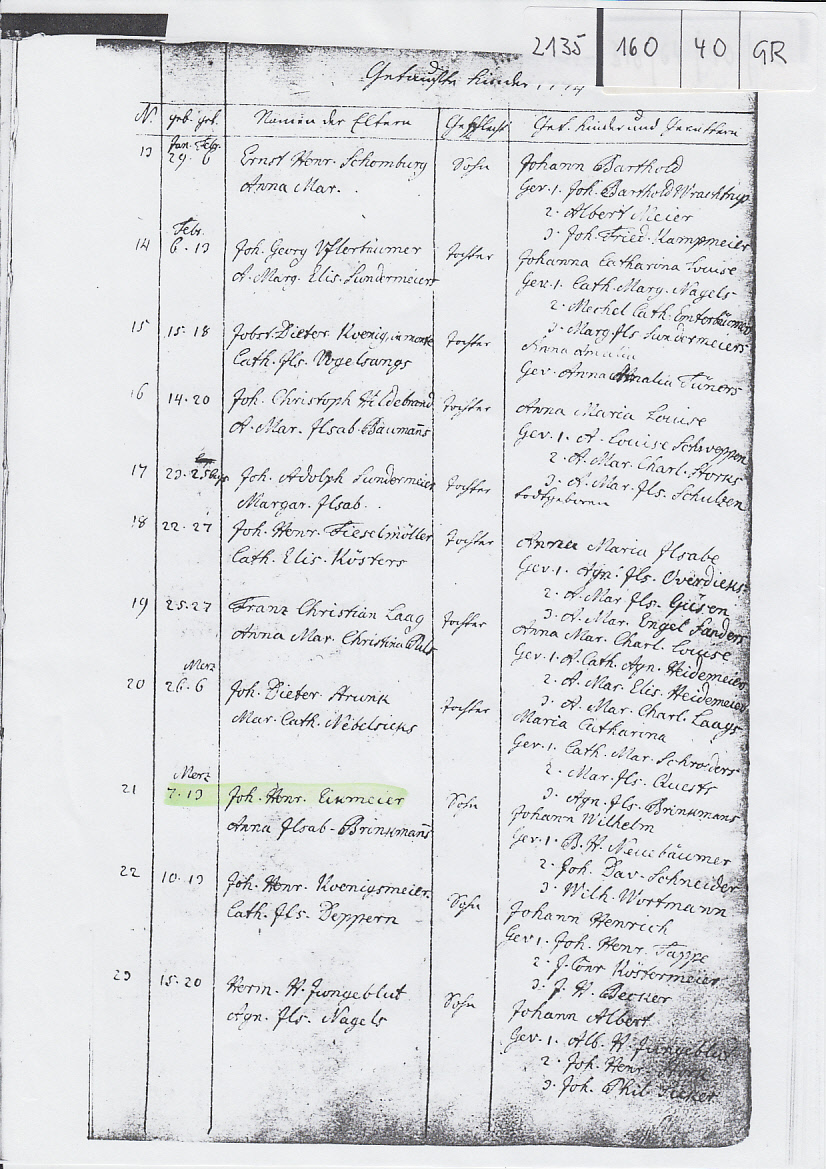 2135 160 40 GR
Getaufte Kinder
N. geb. get. Namen der Eltern Geschlecht Get. Kinder und Gevattern
Jan. Febr.
13 29. 6 Ernst Henr. Schomburg Sohn Johann Barthold
Anna Mar. . Gev. 1. Joh. Barthold
2. Albert Meier
3. Joh. Fried. Kampmeier
Febr.
14 6. 13 Joh. Georg Tochter Johanna Catharina Louise
A. Marg. Elis. Sundermeiers Gev. 1. Cath. Marg. Nagels
2. Mechel Cath.
3. Marg. Ils. Sundermeiers
15 15. 18 Jobst Dieter Koenig, Tochter Anna Amalia
Cath. Ils. Vogelsangs Gev. Anna Amalia Tüners
16 14. 20 Joh. Christoph Hildebrand Tochter Anna Maria Louise
A. Mar. Ilsab. Baumanns Gev. 1. A. Louise Schweppen
2. A. Mar. Charl. Storks
3. A. Mar. Ils. Schulzen
17 23. 25 Joh. Adolph Sundermeier Tochter todtgeboren
Margar. Ilsab. .
18 22. 27 Joh. Henr. Fieselmöller Tochter Anna Maria Ilsabe
Cath. Elis. Kösters Gev. 1. Agn. Ils. Overdieks
2. A. Mar. Ils. Güsen
3. A. Mar. Engel Sanders
19 25. 27 Franz Christian Laag Tochter Anna Mar. Charl. Louise
Anna Mar. Christina Gev. 1. A. Cath. Agn. Heidemeier
2. A. Mar. Elis. Heidemeier
3. A. Mar. Charl. Laags
Merz
20 26. 6 Joh. Dieter Strunk Tochter Maria Catharina
Mar. Cath. Nebelsieks Gev. 1. Cath. Mar. Schröders
2. Mar. Ils. Quests
3. Agn. Ils. Brinkmans
Merz
21 7. 13 Joh. Henr. Eikmeier Sohn Johann Wilhelm
Anna Ilsab. Brinkmanns Gev. 1. B. H. Neuebäumer
2. Joh. Dav. Schneider
3. Wilh. Wortmann
22 10. 13 Joh. Henr. Koenigsmeier Sohn Johann Henrich
Cath. Ils. Deppern Gev. 1. Joh. Henr. Tappe
2. J. Conr. Köstermeier
3. J. H. Becker
23 15. 20 Herm. H. Jungeblut Sohn Johann Albert
Agn. Ils. Nagels Gev. 1. Alb. H. Jungeblut
2. Joh. Henr.
3. Joh. Phil.